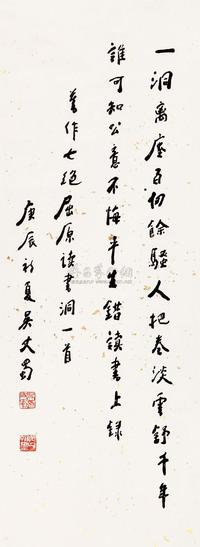 一洞离尘百仞余骚人把卷淡云舒千年
谁可知公意不悔平生错读书上录
旧作七绝屈原读书洞一首
庚辰初夏吴丈蜀